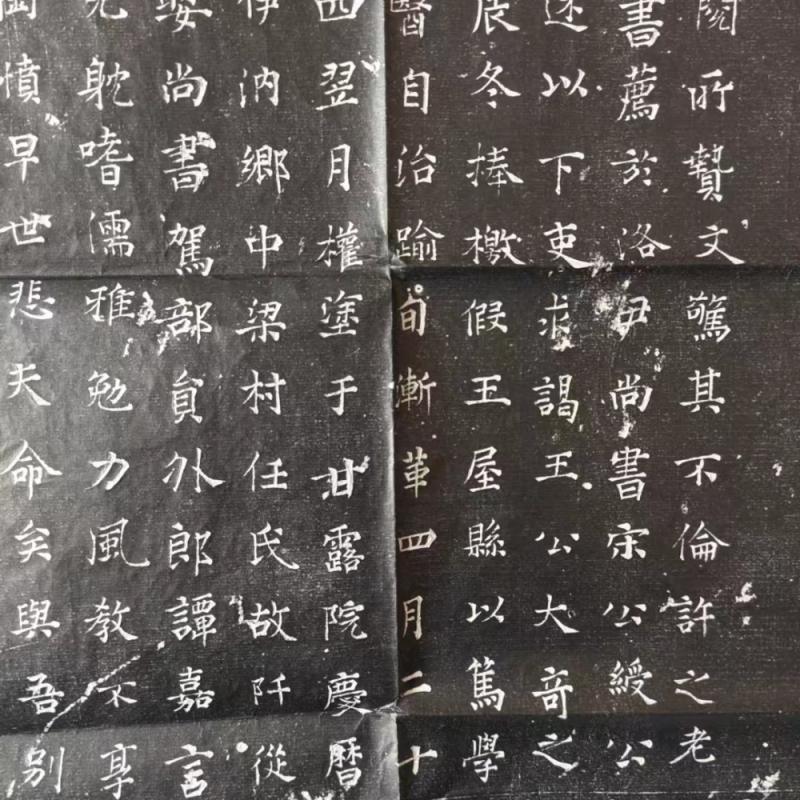 閱所贄文驚其不倫許之老
書薦於洛尹尚書宋公綬公
述以下吏求謁王公大奇之
辰冬捧檄假王屋縣以篤學
醫自治踰旬漸革四月二十
翌月權塗于甘露院慶曆
伊汭鄉中梁村任氏故阡從
娶尚書駕部員外郎譚嘉言
耽嗜儒雅勉力風教不享
憤早世悲夫命矣與吾別